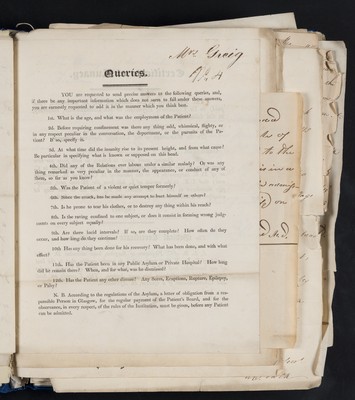 Mrs Greig
Queries.
YOU are requested to send precise answers to the following queries, and,
if there be any important information which does not come to fall under these answers,
you are earnestly requested to add it in the manner which you think best.
1st. What is the age, and what was the employment of the Patient?
2d. Before requiring confinement was there any thing odd, whimsical, flighty, or
in any respect peculiar in the conversation, the deportment, or the pursuits of the Pa-
tient? If so, specify it.
3d. At what time did the insanity rise to its present height, and from what cause?
Be particular in specifying what is known or supposed on this head.
4th. Did any of the Relations ever labour under a similar malady? Or was any
thing remarked as very peculiar in the manner, the appearance, or conduct of any of
them, as far as you know?
5th. Was the Patient of a violent or quiet temper formerly?
6th. Since the attack, has he made any attempt to hurt himself or others?
7th. Is he prone to tear his clothes, or to destroy any thing within his reach?
8th. Is the raving confined to one subject, or does it consist in forming wrong judg-
ments on every subject equally?
9th. Are there lucid intervals? If so, are they complete? How often do they
occur, and how long do they continue?
10th. Has any thing been done for his recovery? What has been done, and with what
effect?
11th. Has the Patient been in any Public Asylum or Private Hospital? How long
did he remain there? When, and for what, was he dismissed?
12th. Has the Patient any other disease? Any Saint, Eruptions, Ruptures, Epilepsy,
or Palsy?
N. B. According to the regulations of the Asylum, a letter of obligation from a res-
ponsible Person in Glasgow, for the regular payment of the Patient's Board, and for the
observance, in every respect, of the rules of the Institution, must be given, before any Patient
can be admitted.